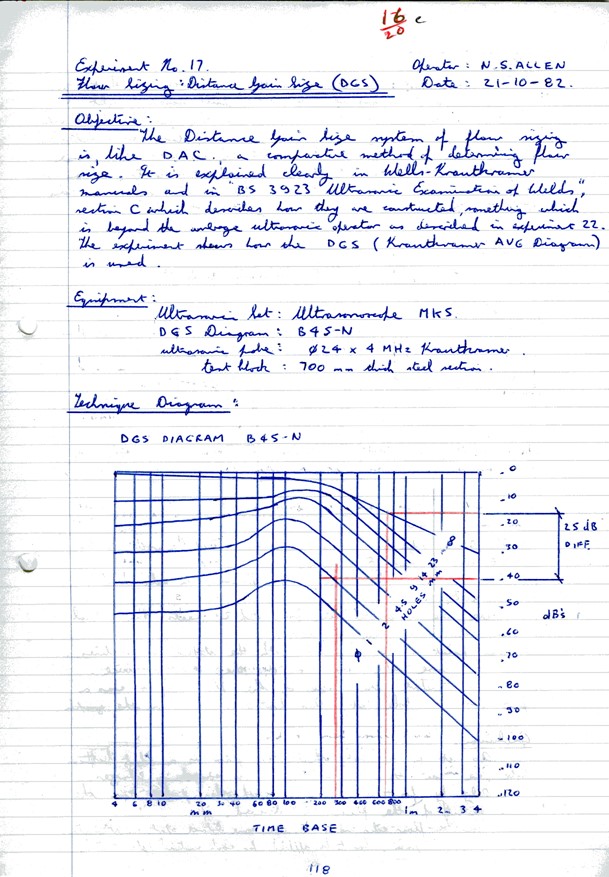 16 c
20
Experiment No. 17. Operator: N.S. ALLEN
Flaw Sizing: Distance Gain Size (DGS) Date: 21-10-82.
Objective:
The Distance Gain Size system of flaw sizing
is, like DAC, a comparative method of determining flaw
size. It is explained clearly in Wells-Krautkramer
manuals and in "BS 3923 Ultrasonic Examination of Welds",
section C which describes how they are constructed, something which
is beyond the average ultrasonic operator as described in experiment 22.
The experiment shows how the DGS (Krautkramer AVG Diagram)
is used.
Equipment:
Ultrasonic Set: Ultrasonoscope MKS.
DGS Diagram: B4S-N
ultrasonic probe: ϕ24 x 4 MHz Krautkramer.
test block: 700 mm thick steel section.
Technique Diagram:
DGS DIAGRAM B4S-N
0
10
20
30
40
50
60
70
80
90
100
110
120
25 dB
DIFF.
dB's
ϕ 1 2 4.5 9 14 23 ∞
HOLES mm
4 6 8 10 20 30 40 60 80 100 200 300 400 600 800 1m 2 3 4
mm
TIME BASE
118